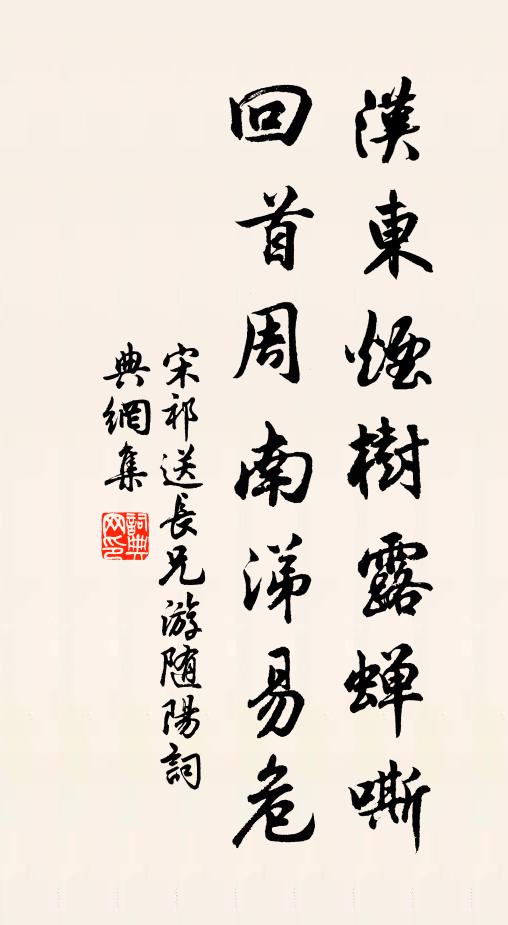 漢東煙樹露蟬嘶
回首周南涕易危
宋祁送長兄游随陽詞
典網集
詞典
网印